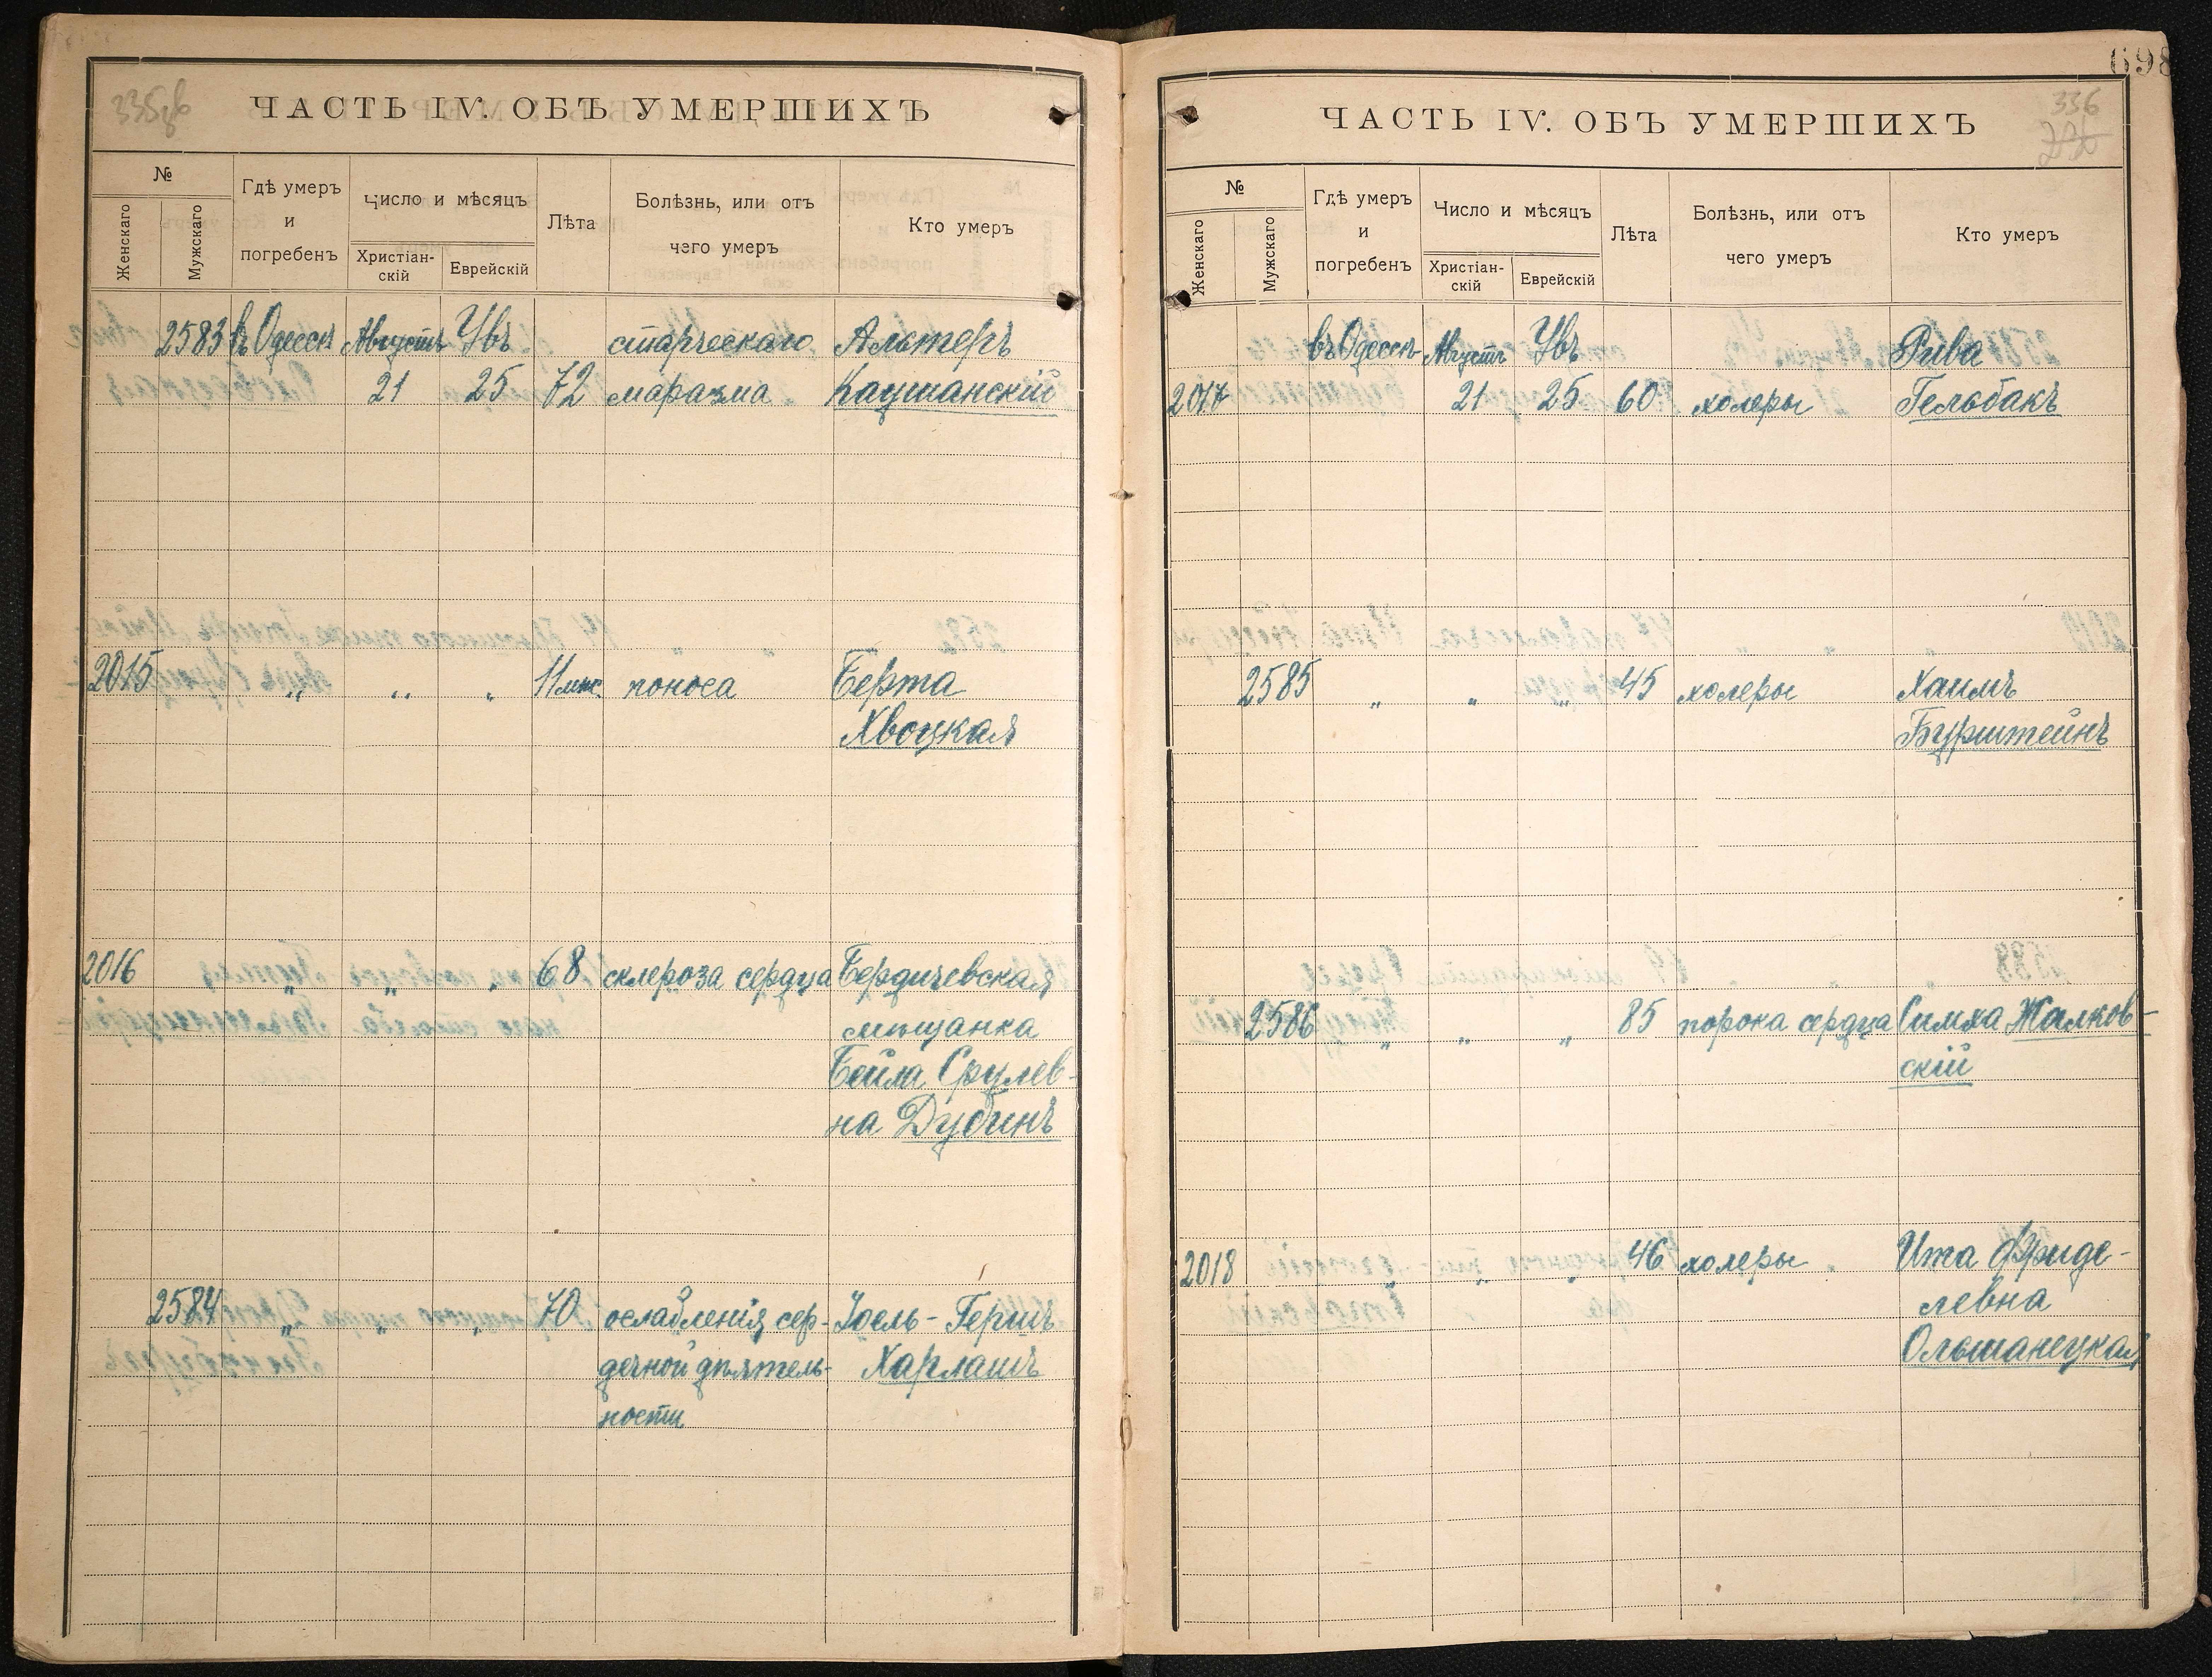 335об
ЧАСТЬ IV. ОБЪ УМЕРШИХЪ
№
Женскаго
Мужскаго
Гдѣ умеръ
и
погребенъ
Число и мѣсяцъ
Христіан-
скій
Еврейскій
Лѣта
Болѣзнь, или отъ
чего умеръ
Кто умеръ
2583 въ Одессѣ Августъ Увъ старческаго Альтеръ
21 25 72 маразма Каушанскій
2015 „ „ „ 11 мѣс. поноса Берта
Хвоцкая
2016 „ „ „ 68 склероза сердца Бердичевская
мѣщанка
Бейла Срулев-
на Дубинъ
2584 „ „ „ 70 ослабленія сер- Іоель-Гершъ
дечной дѣятель- Харлашъ
ности
698
336
ЧАСТЬ IV. ОБЪ УМЕРШИХЪ
№
Женскаго
Мужскаго
Гдѣ умеръ
и
погребенъ
Число и мѣсяцъ
Христіан-
скій
Еврейскій
Лѣта
Болѣзнь, или отъ
чего умеръ
Кто умеръ
въ Одессѣ Августъ Увъ Рива
2017 21 25 60 холеры Гельбакъ
2585 „ „ „ 45 холеры Хаимъ
Бурштейнъ
2586 „ „ „ 85 порока сердца Симха Жалков-
скій
2018 „ „ „ 46 холеры Ита Фриде-
левна
Ольшанецкая